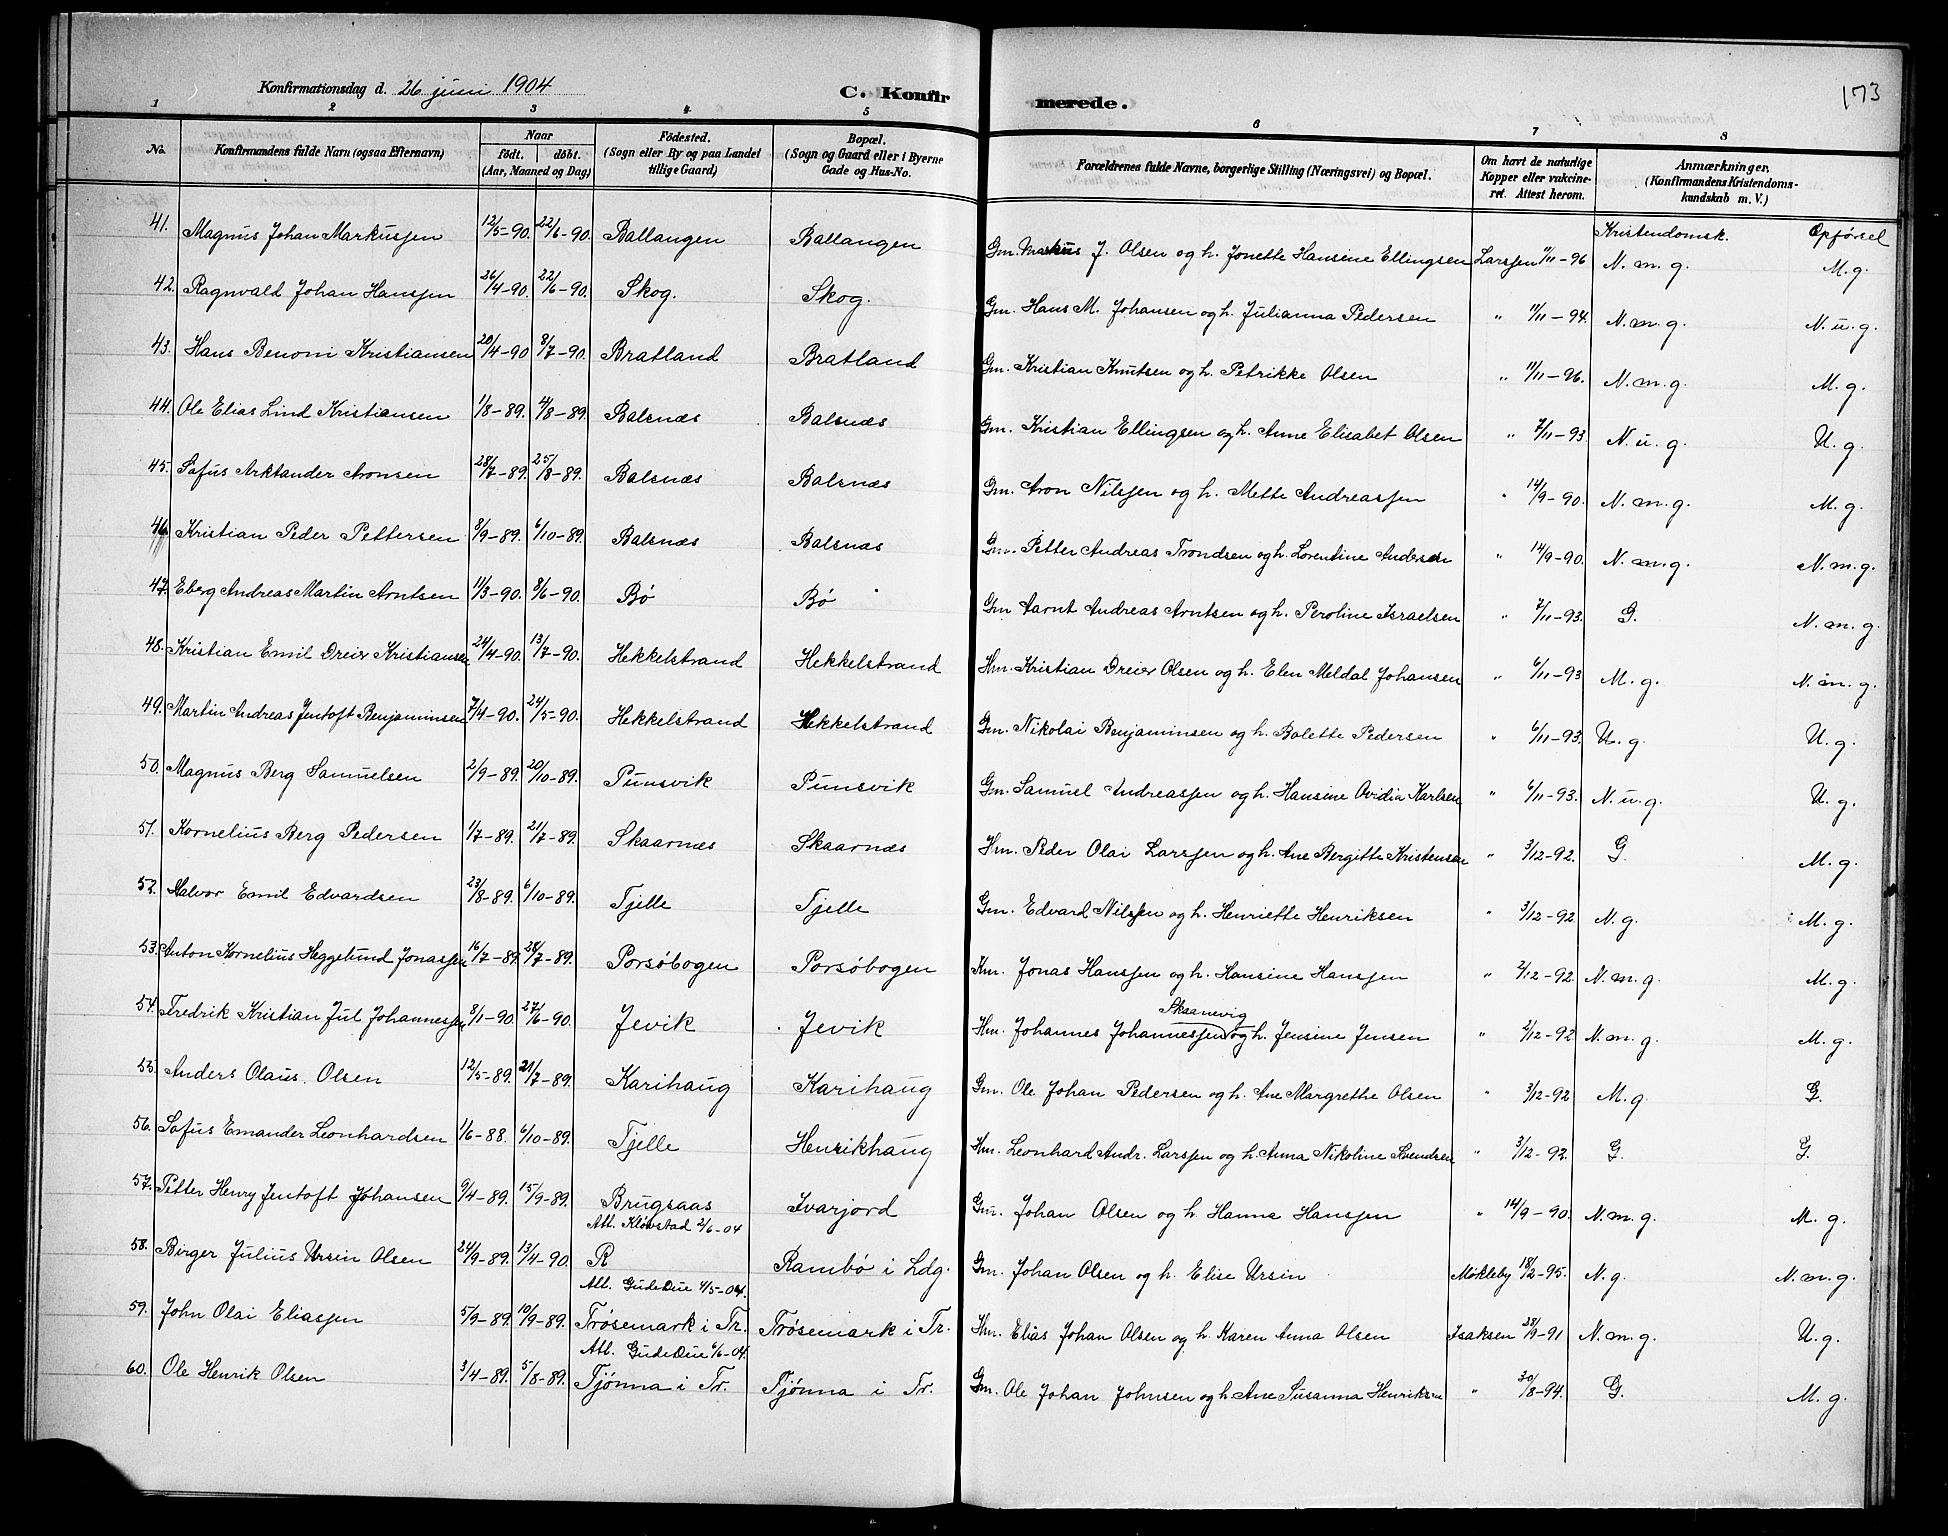 Konfirmationsdag d. 26 juni 1904
C. Konfirmerede.
173
1 2 3 4 5 6 7 8
No. Konfirmandens fulde Navn (ogsaa Efternavn) Naar födt. döbt. (Aar, Maaned og Dag) Födested. (Sogn eller By og paa Landet tillige Gaard) Bopæl. (Sogn og Gaard eller i Byerne Gade og Hus-No. Forældrenes fulde Navne, borgerlige Stilling (Næringsvei) og Bopæl. Om havt de naturlige Kopper eller vakcineret. Attest herom. Anmærkninger. (Konfirmandens Kristendomskundskab m. V.)
Kristendomsk. Opførsel
41. Magnus Johan Markussen 12/5-90. 22/6-90. Ballangen Ballangen Gm. Markus J. Olsen og h. Jonette Hansine Ellingsen Larssen 11/11-96 N. m. g. M. g.
42. Ragnvald Johan Hanssen 26/4-90. 22/6-90. Skog. Skog. Gm. Hans M. Johansen og h. Julianna Pedersen " 11/11-94. N. m. g. N. u. g.
43. Hans Benoni Kristiansen 20/4-90 8/7-90. Bratland Bratland Gm. Kristian Knutsen og h. Petrikke Olsen " 11/11-96. N. m. g. M. g.
44. Ole Elias Lind Kristiansen 1/8-89. 4/8-89. Balsnæs Balsnæs Gm. Kristian Ellingsen og h. Anne Elisabet Olsen " 7/11-93. N. u. g. U. g.
45. Sofus Arktander Aronsen 28/7-89. 25/8-89. Balsnæs Balsnæs Gm. Aron Nilssen og h. Mette Andreassen " 14/9-90. N. m. g. M. g.
46. Kristian Peder Pettersen 8/9-89. 6/10-89. Balsnæs Balsnæs Gm. Petter Andreas Trondsen og h. Lorentine Andersen " 14/9-90. N. m. g. N. m. g.
47. Eberg Andreas Martin Arntsen 11/3-90. 8/6-90. Bø Bø Gm Aarnt Andreas Arntsen og h. Peroline Israelsen " 7/11-93. G. N. m. g.
48. Kristian Emil Dreier Kristiansen 24/4-90. 13/7-90. Hekkelstrand Hekkelstrand Hm. Kristian Dreier Olsen og h. Elen Meldal Johansen " 6/11-93 M. g. N. m. g.
49. Martin Andreas Jentoft Benjaminsen 7/4-90. 24/5-90. Hekkelstrand Hekkelstrand Gm. Nikolai Benjaminsen og h. Balette Pedersen " 6/11-93. U. g. U. g.
50. Magnus Berg Samuelsen 2/9-89. 20/10-89. Punsvik Punsvik Gm. Samuel Andreassen og h. Hansine Ovidia Karlsen " 6/11-93. N. u. g. U. g.
51. Kornelius Berg Pedersen 1/7-89. 21/7-89. Skaarnæs Skaarnæs Hm. Peder Olai Larssen og h. Ane Bergitte Kristensen " 3/12-92. G. M. g.
52. Halvor Emil Edvardsen 23/8-89. 6/10-89. Tjelle Tjelle Gm. Edvard Nilssen og h. Henriette Henriksen " 3/12-92 N. g. M. g.
53. Anton Kornelius Heggelund Jonassen 16/7-89. 28/7-89. Porsøbogen Porsøbogen Km. Jonas Hanssen og h. Hansine Hanssen " 2/12-92. N. m. g. M. g.
54. Fredrik Kristian Jul Johannessen 8/1-90. 27/6-90. Jevik Jevik Hm. Johannes Johannessen Skaanevig og h. Jensine Jensen " 2/12-92 N. m. g. M. g.
55. Anders Olaus. Olsen 12/5-89. 21/7-89. Karihaug Karihaug Gm. Ole Johan Pedersen og h. Ane Margrethe Olsen " 3/12-92 M. g. G.
56. Sofus Emander Leonhardsen 1/6-88. 6/10-89. Tjelle Henrikhaug Hm. Leonhard Andr. Larssen og h. Anna Nikoline Svendsen " 3/12-92. G. G.
57. Petter Henry Jentoft Johansen 9/4-89. 15/9-89. Brugsaas Ivarjord Gm. Johan Olsen og h. Hanna Hanssen " 14/9-90. N. m. g. M. g.
Att. Kløvstad 2/6-04
58. Birger Julius Ursin Olsen 24/9-89. 13/4-90. R Rambø i Ldg. Gm. Johan Olsen og h. Elise Ursin Møkleby 18/2-95. N. g. N. m. g.
Att. Gude Due 4/5-04.
59. John Olai Eliassen 5/9-89. 10/9-89. Trøsemark i Tr. Trøsemark i Tr. Hm. Elias Johan Olsen og h. Karen Anna Olsen Isaksen 28/9-91 N. m. g. U. g.
Att. Gude Due 6/6-04.
60. Ole Henrik Olsen 3/4-89. 5/8-89. Tjønna i Tr. Tjønna i Tr. Gm. Ole Johan Johnsen og h. Ane Susanna Henriksen " 30/8-94. G. M. g.